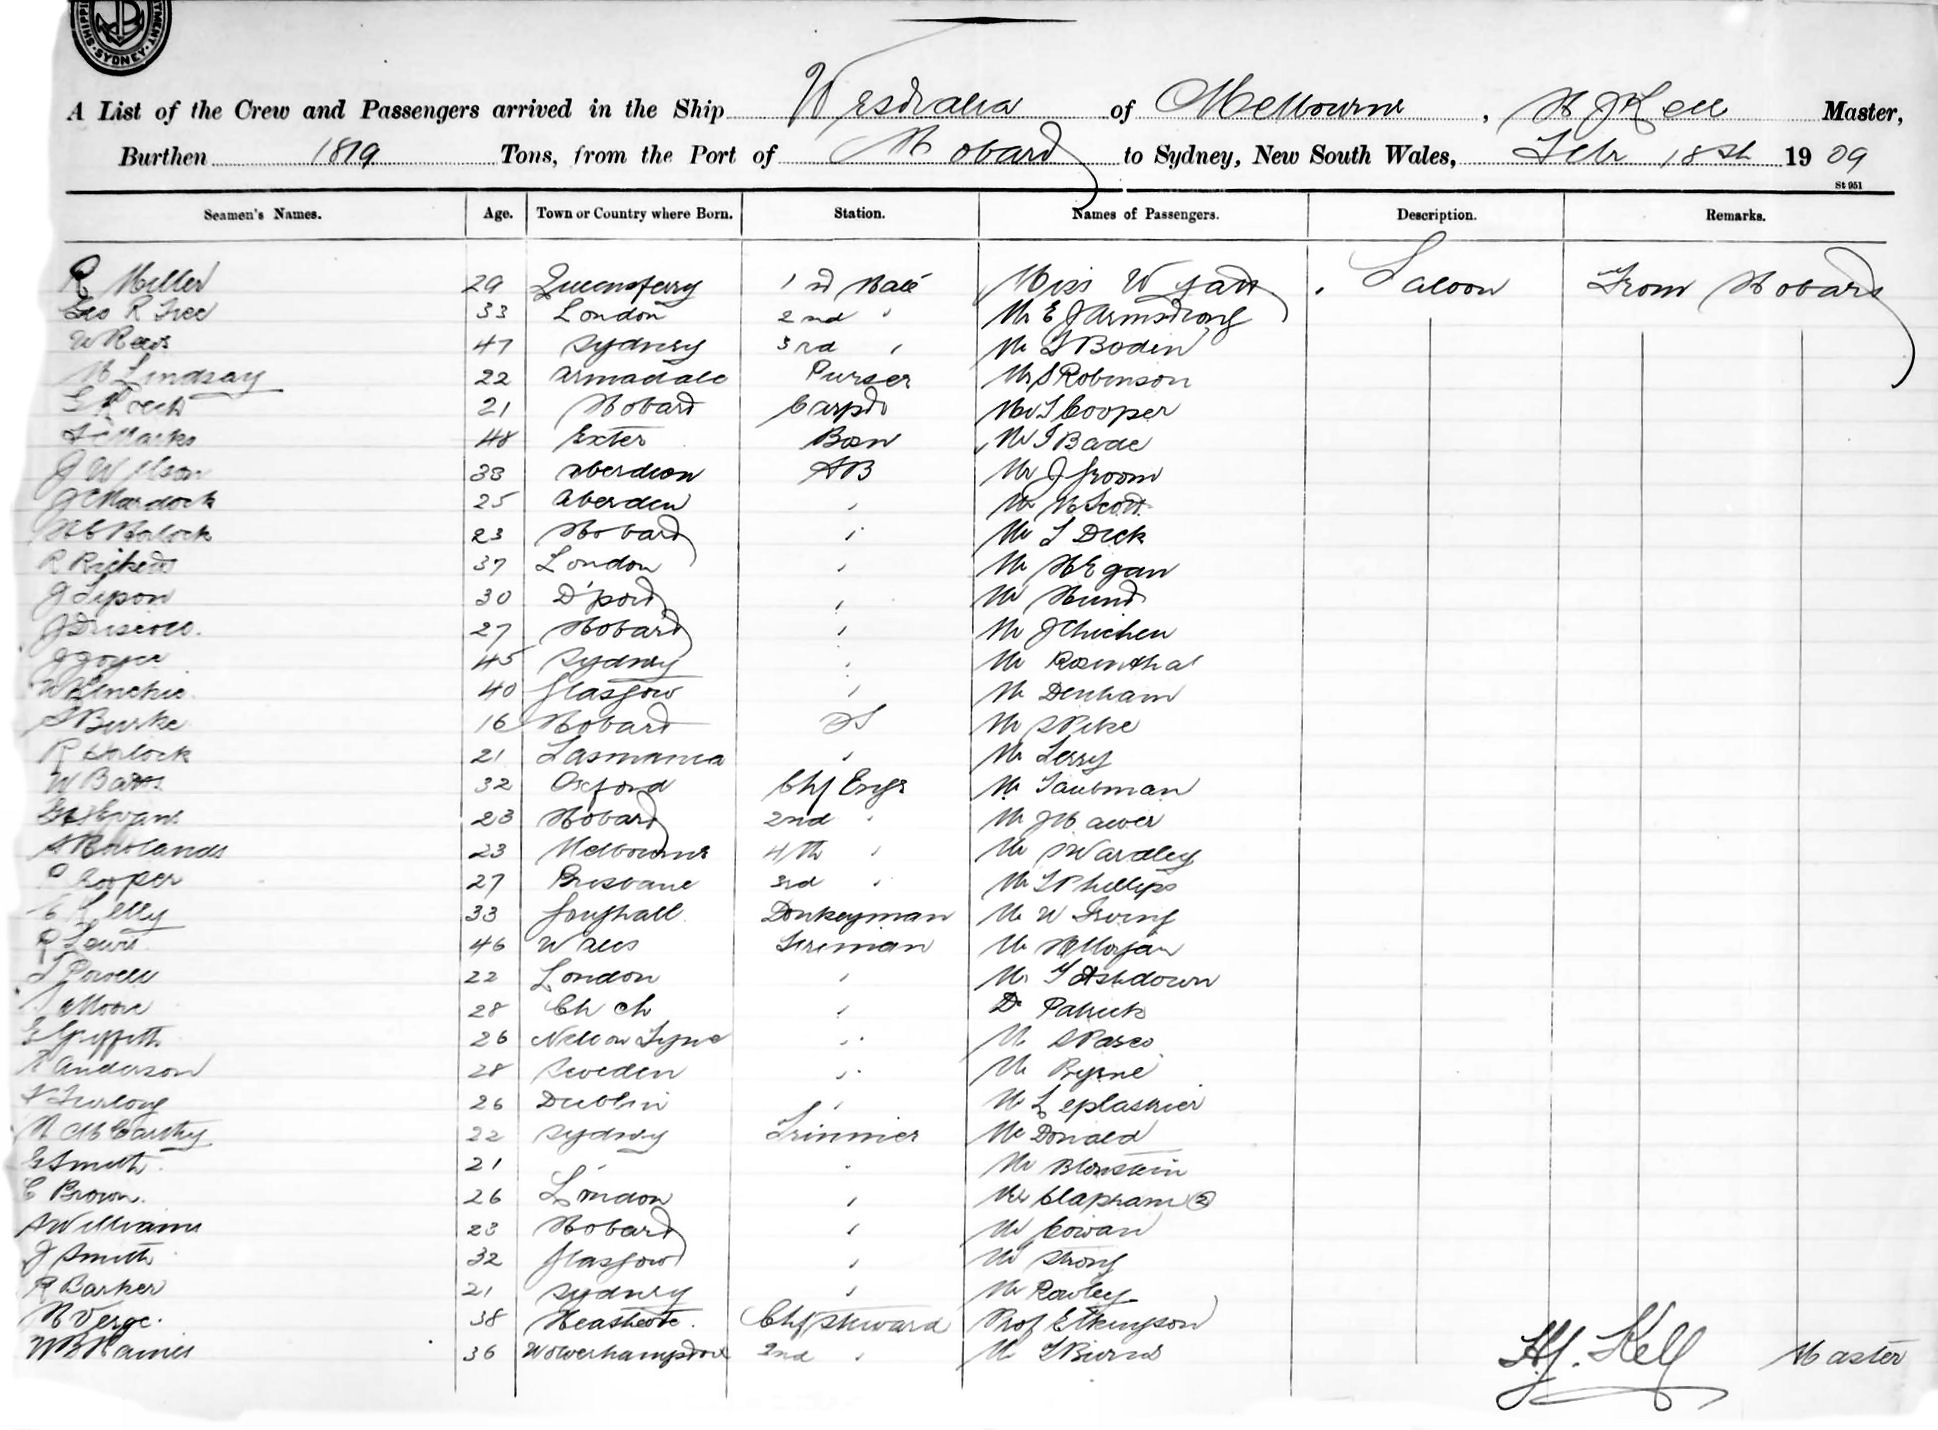 SYDNEY
A List of the Crew and Passengers arrived in the Ship Westralia of Melbourne, H J Kell Master,
Burthen 1819 Tons, from the Port of Hobart to Sydney, New South Wales, Febr 18th 1909
St 951
Seamen's Names. Age. Town or Country where Born. Station. Names of Passengers. Description. Remarks.
R Miller 29 Queensferry 1st Mate Miss Wyatt Saloon From Hobart
Geo R Free 33 London 2nd " Mr E J Armstrong
W Rees 47 Sydney 3rd " Mr Boden
H Lindsay 22 Armadale Purser Mr S Robinson
21 Hobart Carptr Mr Cooper
Marks 48 Exter Bosn Mr Bade
J Wilson 33 Aberdeen AB Mr J Groom
J C Murdoch 25 Aberden " Mr H Scott
23 Hobart " Mr Dick
R Ricketts 37 London " Mr H Egan
J Tipon 30 D'port " Mr Hunt
J Driscoll. 27 Hobart " Mr J Chichen
J Joyce 45 Sydney " Mr Rosenthal
W 40 Glasgow " Mr Denham
Burke 16 Hobart OS Mr S Pike
R 21 Tasmania " Mr Terry
W Batts 32 Oxford Chf Engr Mr Taubman
Evans 23 Hobart 2nd " Mr J
Rowlands 23 Melbourne 4th " Mr Wardley
Cooper 27 Brisbane 3rd " Mr Phillips
C Kelly 33 Donkeyman Mr W Irving
R Lewis 46 Wales Fireman Mr H Morgan
Powell 22 London " Mr Ashdown
Moore 28 Ch Ch " Dr Patrick
G Griffith 26 " Mr S Pasco
Anderson 28 Sweden " Mr Byrne
Furlong 26 Dublin " Mr Leplastrier
McCarthy 22 Sydney Trimmer Mr Donald
G Smith 21 " " Mr Blonstein
C Brown. 26 London " Mr Clapham (2)
Williams 23 Hobart " Mr Cowan
J Smith 32 Glasgow " Mr Strong
R Barker 21 Sydney " Mr Rowley
H Verge. 38 Heathcote. Chf Steward Prof E Tkingson
W B Raines 36 Wolverhampton 2nd " Mr Burns
H.J. Kell Master